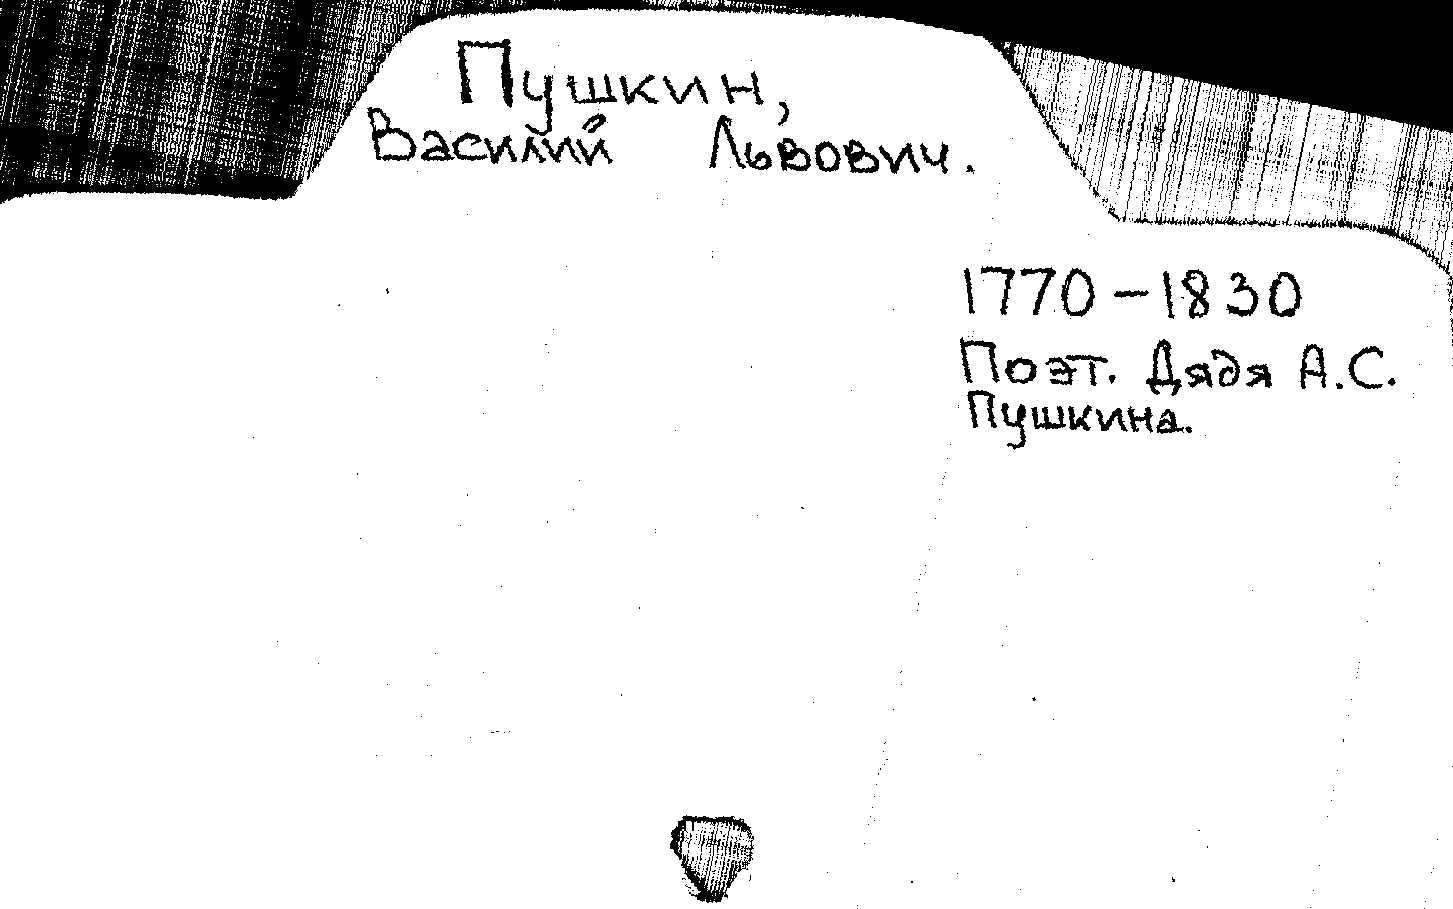 Пушкин,
Василий Львович.
1770-1830
Поэт. Дядя А.С.
Пушкина.